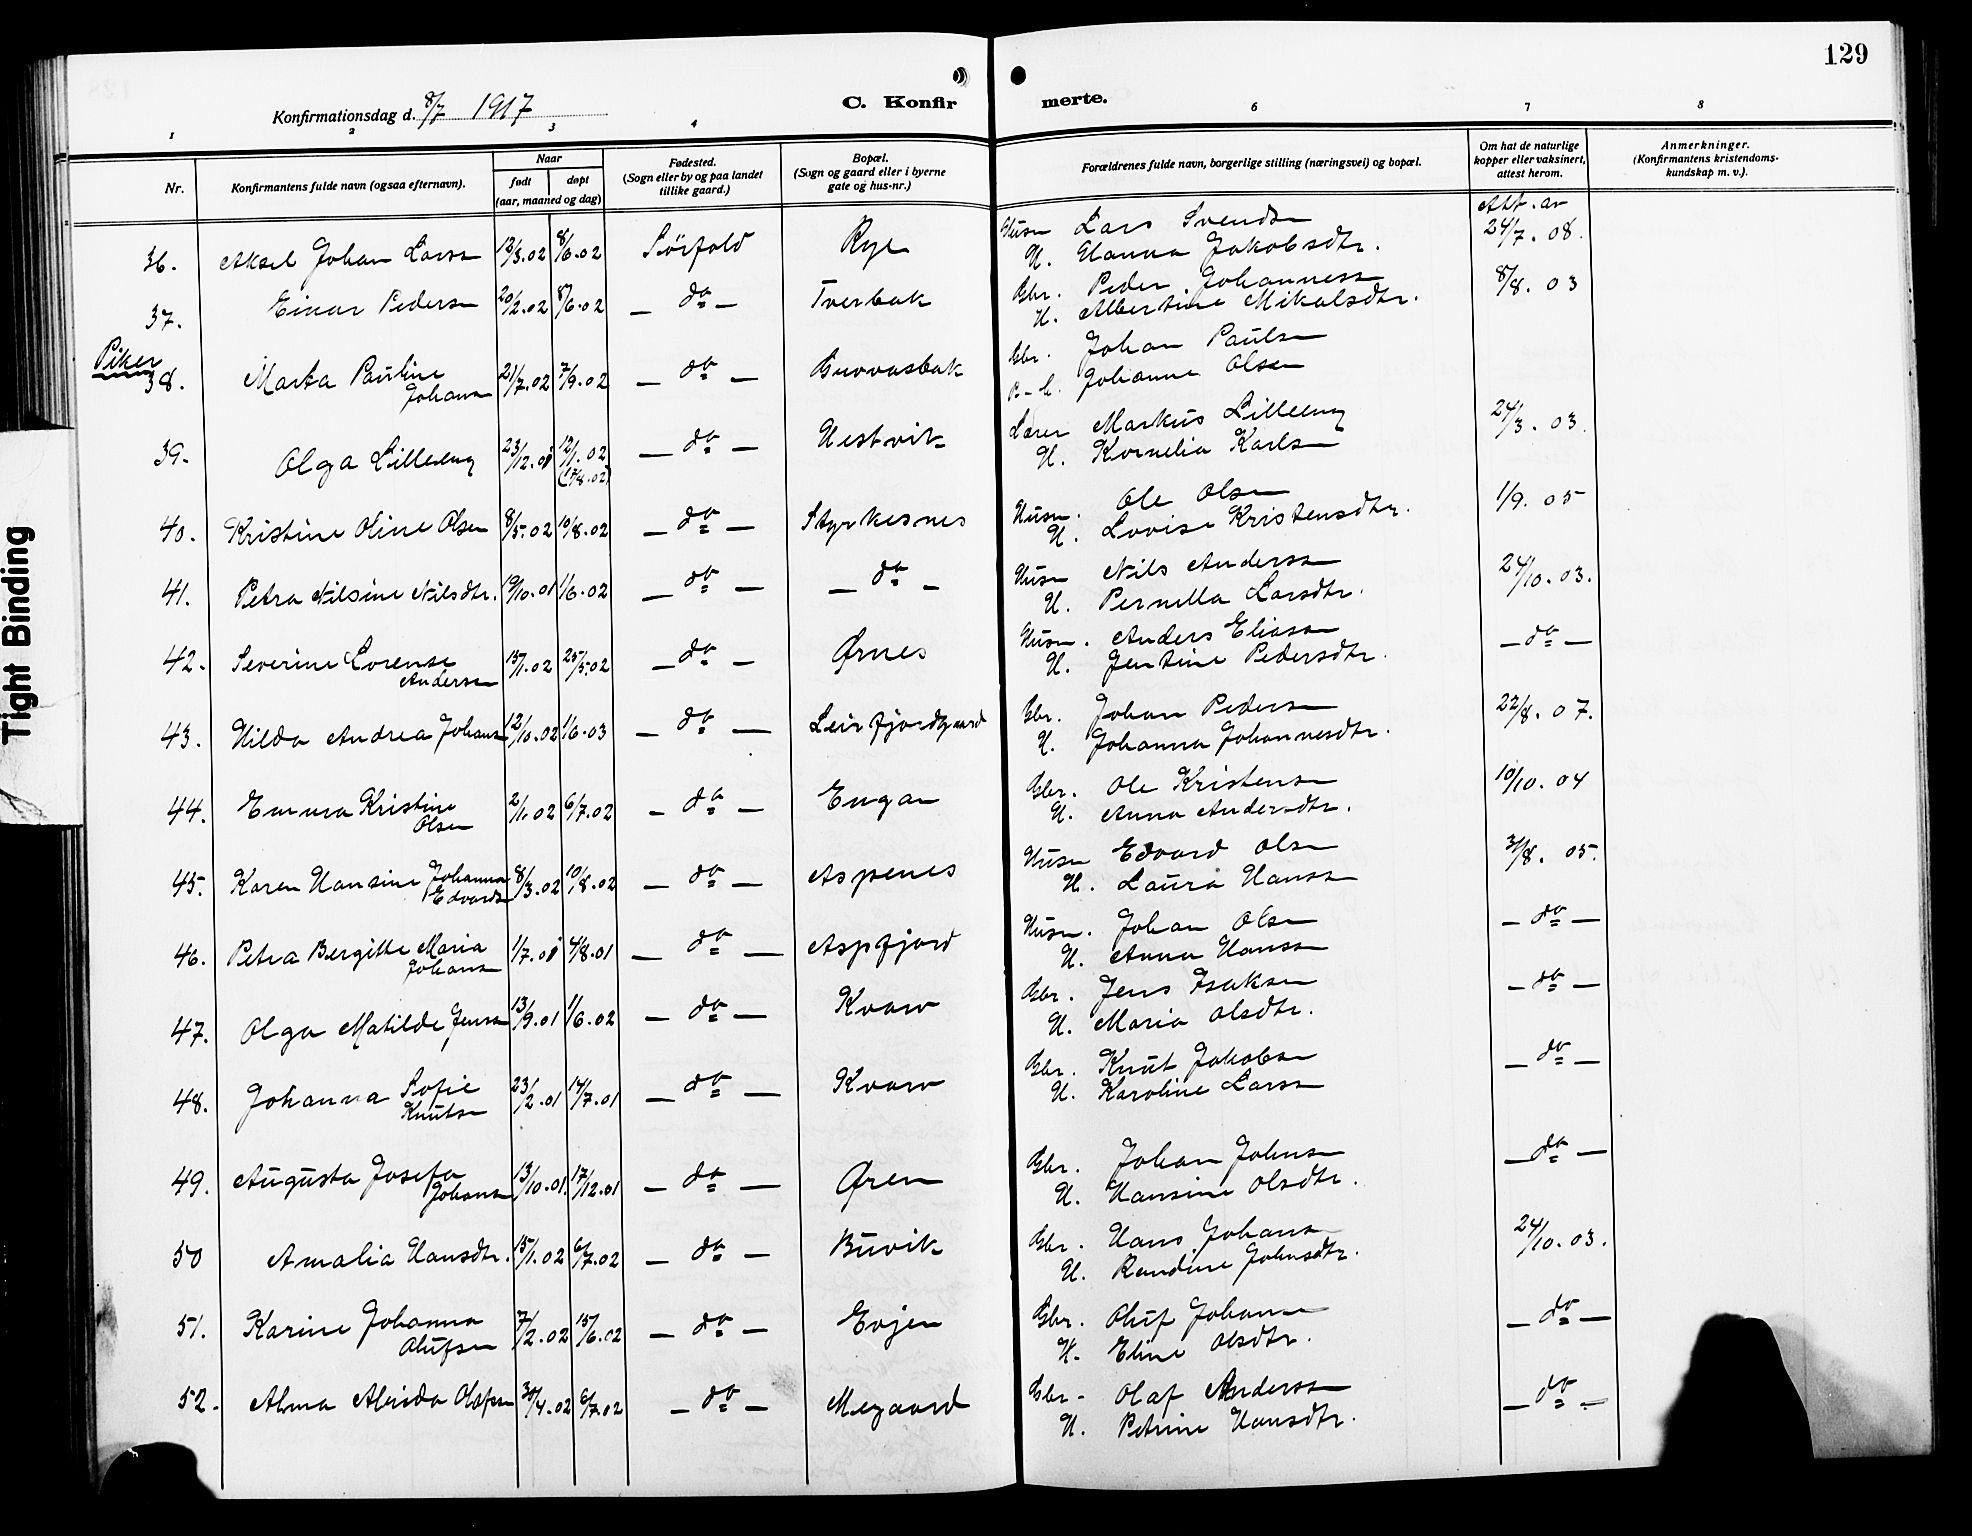 129
Konfirmationsdag d. 8/7 1917
C. Konfirmerte.
1 2 3 4 6 7 8
Nr.
Konfirmantens fulde navn (ogsaa efternavn).
Naar
født døpt
(aar, maaned og dag)
Fødested.
(Sogn eller by og paa landet
tillike gaard.)
Bopæl.
(Sogn og gaard eller i byerne
gate og hus-nr.)
Forældrenes fulde navn, borgerlige stilling (næringsvei) og bopæl.
Om hat de naturlige
kopper eller vaksinert,
attest herom.
Anmerkninger.
(Konfirmantens kristendoms-
kundskap m. v.).
Att. av
36. Aksel Johan Larsn 13/3.02 8/6.02 Sörfold Rye Husm Lars Svendsn 24/7.08.
H. Hanna Jakobsdtr.
37. Einar Pedersn 20/2.02 8/6.02 — do — Tverbak Gbr. Peder Johannessn 8/8.03
H. Albertine Mikalsdtr.
Piker
38. Marta Pauline 21/7.02 7/9.02 — do — Guovasbak Gbr. Johan Paulsn
Johansn Johanne Olsen
39. Olga Lilleeng 23/12.01 12/1.02 — do — Hestvik Lærer Markus Lilleeng 24/3.03.
(17/8.02) H. Kornelia Karlsn
40. Kristine Oline Olsen 8/5.02 10/8.02 — do — Styrkesnes Husm. Ole Olsn 1/9.05
H. Lovise Kristensdtr.
41. Petra Nilsine Nilsdtr. 19/10.01 1/6.02 — do — — do — Husm Nils Anderssn 24/10.03.
H. Pernella Larsdtr.
42. Severine Lorense 15/1.02 25/5.02 — do — Ørnes Husm. Anders Eliassn — do —
Andersen H. Jentine Pedersdtr.
43. Hilda Andrea Johansn 12/10.02 1/6.03 — do — Leirfjordgaard Gbr. Johan Pedersn 22/8.07.
H. Johanna Johannesdtr.
44. Emma Kristine 2/1.02 6/7.02 — do — Engan Gbr. Ole Kristensn 10/10.04
Olsen H. Anna Andersdtr.
45. Karen Hansine Johanna 8/3.02 10/8.02 — do — Aspenes Husm Edvard Olsn 31/8.05.
Edvardsn H. Laura Hanssn
46. Petra Bergitte Maria 1/7.01 4/8.01 — do — Aspfjord Husm. Johan Olsn — do —
Johansn H. Anna Hanssn
47. Olga Matilde Jensn 13/9.01 1/6.02 — do — Kvarv Gbr. Jens Isaksn — do —
H. Maria Olsdtr.
48. Johanna Sofie 23/2.01 14/7.01 — do — Kvarv Gbr. Knut Jakobsn — do —
Knutsn H. Karoline Larssn
49. Augusta Josefa 13/10.01. 17/12.01 — do — Øren Gbr. Johan Johnsn — do —
Johansn H. Hansine Olsdtr.
50 Amalia Hansdtr. 15/1.02 6/7.02 — do — Buvik Gbr. Hans Johansn 24/10.03.
H. Randine Johnsdtr.
51. Karine Johanna 7/2.02 15/6.02 — do — Evjen Gbr. Oluf Johansn — do —
Olufsen H. Eline Olsdtr.
52. Alma Alvida Olafsn 30/4.02 6/7.02 — do — Megaard Gbr- Olaf Anderssn — do —
H. Petrine Hansdtr.
Tight Binding